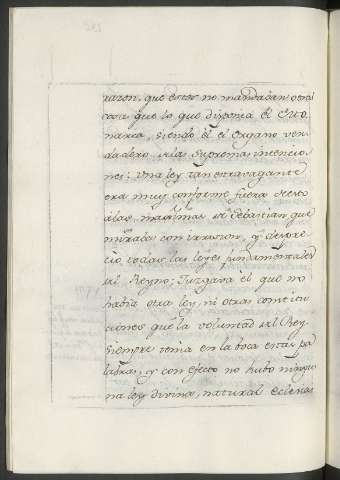 razon, que estos no mandaban otra
cosa que lo que disponia el Mo
narca, siendo él el Organo ver
dadero de las Supremas intencio
nes: Una ley tan extravagante
era muy conforme fuera de esto
a las maximas de Sebastian que
miraba con irrision, y despre
cio todas las leyes fundamentales
del Reyno; Juzgaba él que no
habia otra ley, ni otras constitu
ciones que la voluntad del Rey
siempre tenia en la boca estas pa
labras, y con efecto no hubo ningu
na ley divina, natural eclesias